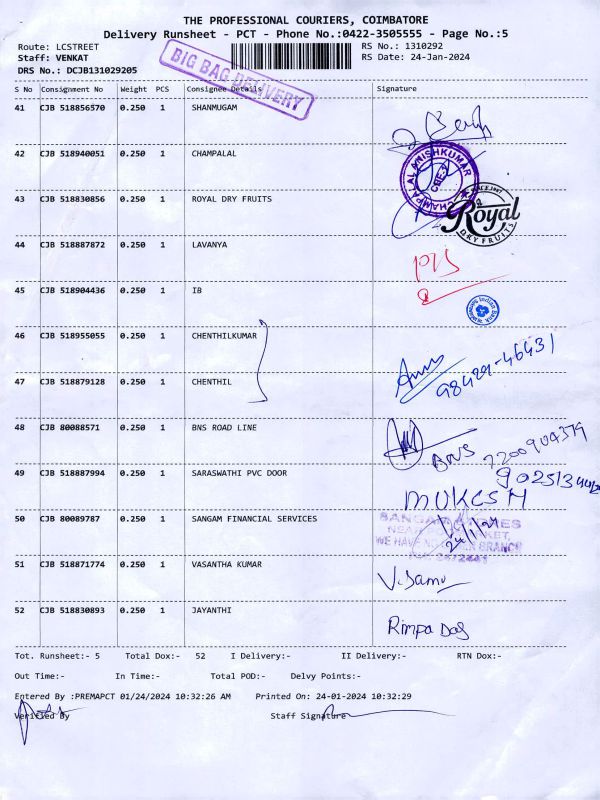 THE PROFESSIONAL COURIERS, COIMBATORE
Delivery Runsheet - PCT - Phone No.:0422-3505555 - Page No.:5
Route: LCSTREET RS No.: 1310292
Staff: VENKAT RS Date: 24-Jan-2024
DRS No.: DCJB131029205
BIG BAG DELIVERY
S No Consignment No Weight PCS Consignee Details Signature
41 CJB 518856570 0.250 1 SHANMUGAM
42 CJB 518940051 0.250 1 CHAMPALAL
CHAMPALAL ANISHKUMAR
CBE-
43 CJB 518830856 0.250 1 ROYAL DRY FRUITS
SINCE 1997
Royal
DRY FRUITS
44 CJB 518887872 0.250 1 LAVANYA
45 CJB 518904436 0.250 1 IB
Indian Bank
46 CJB 518955055 0.250 1 CHENTHILKUMAR
98429-46431
47 CJB 518879128 0.250 1 CHENTHIL
48 CJB 80088571 0.250 1 BNS ROAD LINE
BNS 7200904379
49 CJB 518887994 0.250 1 SARASWATHI PVC DOOR
MUKESH
50 CJB 80089787 0.250 1 SANGAM FINANCIAL SERVICES
24/1/24
WE HAVE NO BRANCH
51 CJB 518871774 0.250 1 VASANTHA KUMAR
52 CJB 518830893 0.250 1 JAYANTHI
Rimpa Das
Tot. Runsheet:- 5 Total Dox:- 52 I Delivery:- II Delivery:- RTN Dox:-
Out Time:- In Time:- Total POD:- Delvy Points:-
Entered By :PREMAPCT 01/24/2024 10:32:26 AM Printed On: 24-01-2024 10:32:29
Verified By Staff Signature